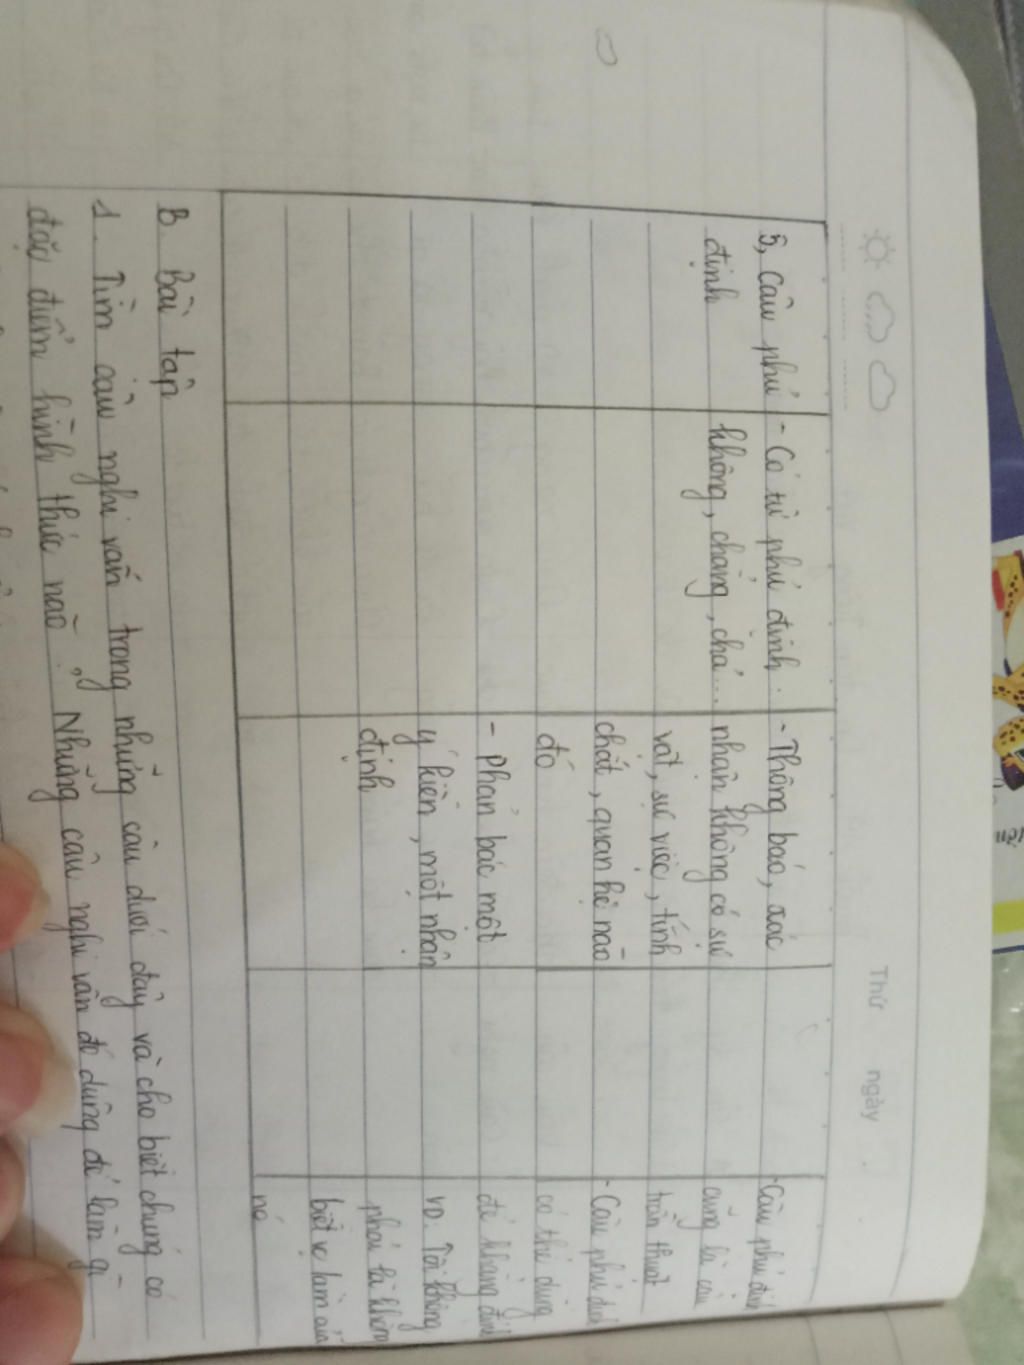 Thứ ngày
5, Câu phủ
định
- Có từ phủ định:
không, chẳng, chả...
- Thông báo, xác
nhận không có sự
vật, sự việc, tính
chất, quan hệ nào
đó
- Phản bác một
ý kiến, một nhận
định
- Câu phủ định
cũng là câu
trần thuật
- Câu phủ định
có thể dùng
để khẳng định
VD: Tôi không
phải là không
biết vẽ làm của
nó
B Bài tập
1. Tìm câu nghi vấn trong những câu dưới đây và cho biết chúng có
đặc điểm hình thức nào? Những câu nghi vấn đó dùng để làm gì